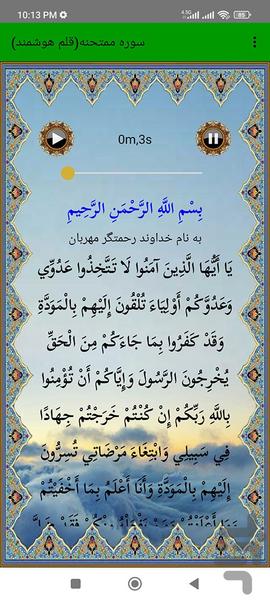 10:13 PM
سوره ممتحنه(قلم هوشمند)
0m,3s
بِسْمِ اللَّهِ الرَّحْمَنِ الرَّحِيمِ
به نام خداوند رحمتگر مهربان
يَا أَيُّهَا الَّذِينَ آمَنُوا لَا تَتَّخِذُوا عَدُوِّي
وَعَدُوَّكُمْ أَوْلِيَاءَ تُلْقُونَ إِلَيْهِمْ بِالْمَوَدَّةِ
وَقَدْ كَفَرُوا بِمَا جَاءَكُمْ مِنَ الْحَقِّ
يُخْرِجُونَ الرَّسُولَ وَإِيَّاكُمْ أَنْ تُؤْمِنُوا
بِاللَّهِ رَبِّكُمْ إِنْ كُنْتُمْ خَرَجْتُمْ جِهَادًا
فِي سَبِيلِي وَابْتِغَاءَ مَرْضَاتِي تُسِرُّونَ
إِلَيْهِمْ بِالْمَوَدَّةِ وَأَنَا أَعْلَمُ بِمَا أَخْفَيْتُمْ